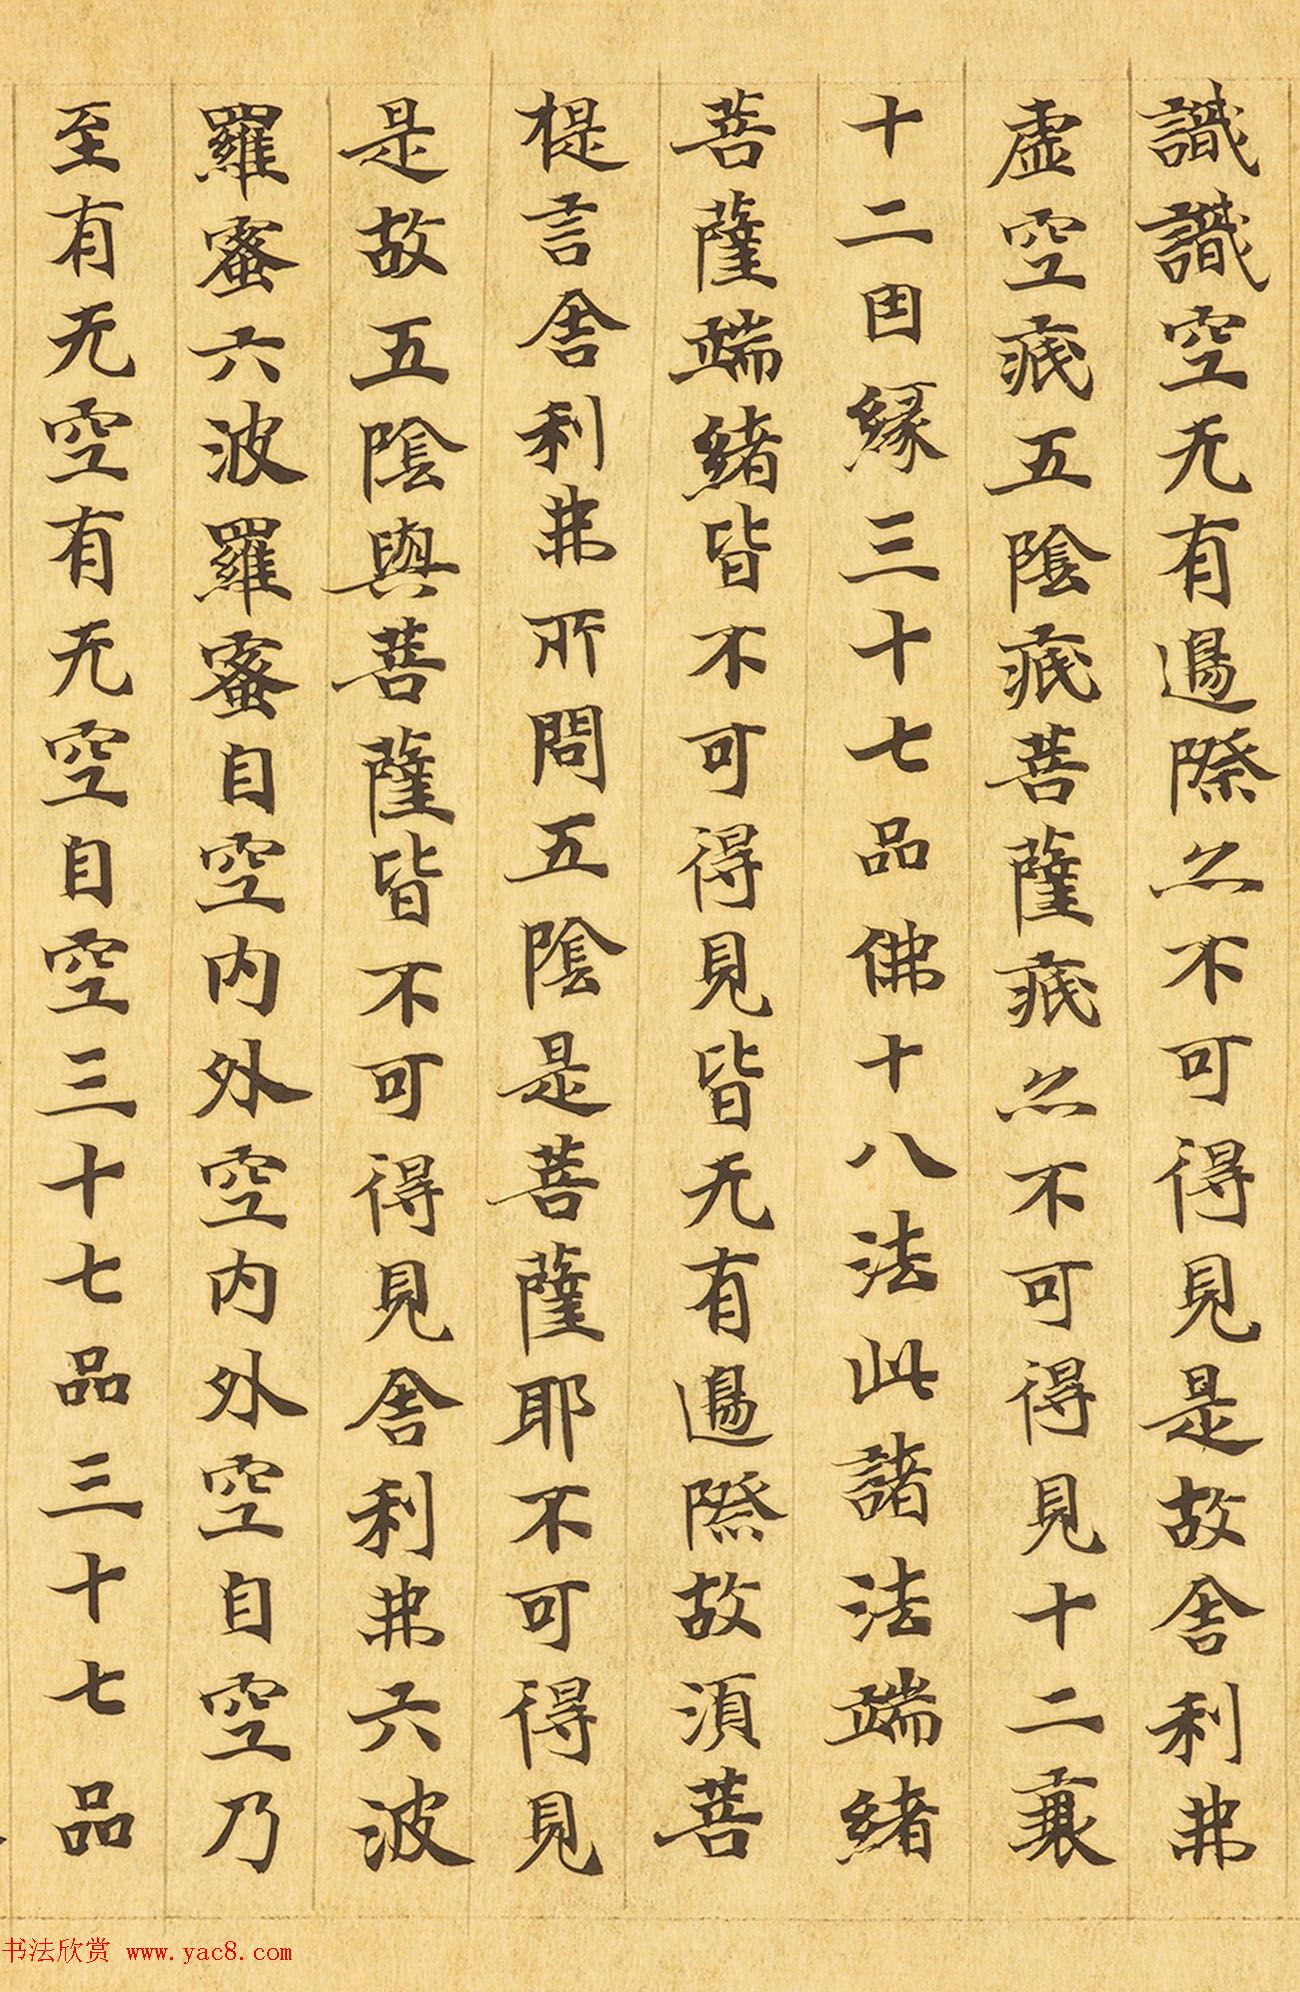 識識空无有邊際亦不可得見是故舍利弗
虛空疷五陰疷菩薩疷亦不可得見十二衰
十二因緣三十七品佛十八法此諸法端緒
菩薩端緒皆不可得見皆无有邊際故須菩
提言舍利弗所問五陰是菩薩耶不可得見
是故五陰與菩薩皆不可得見舍利弗六波
羅蜜六波羅蜜自空內外空內外空自空乃
至有无空有无空自空三十七品三十七品
书法欣赏 www.yac8.com